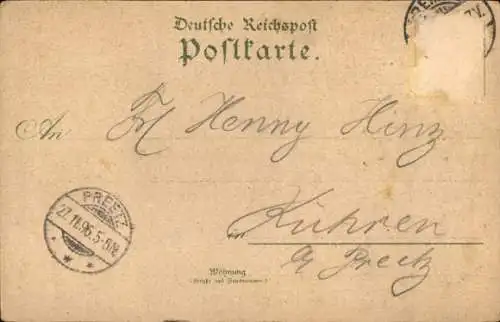 Deutsche Reichspost
Postkarte.
An Frl Henny Hinz
PREETZ
27.11.96.5-6N
in Kühren
b/ Preetz
Wohnung
(Straße und Hausnummer)